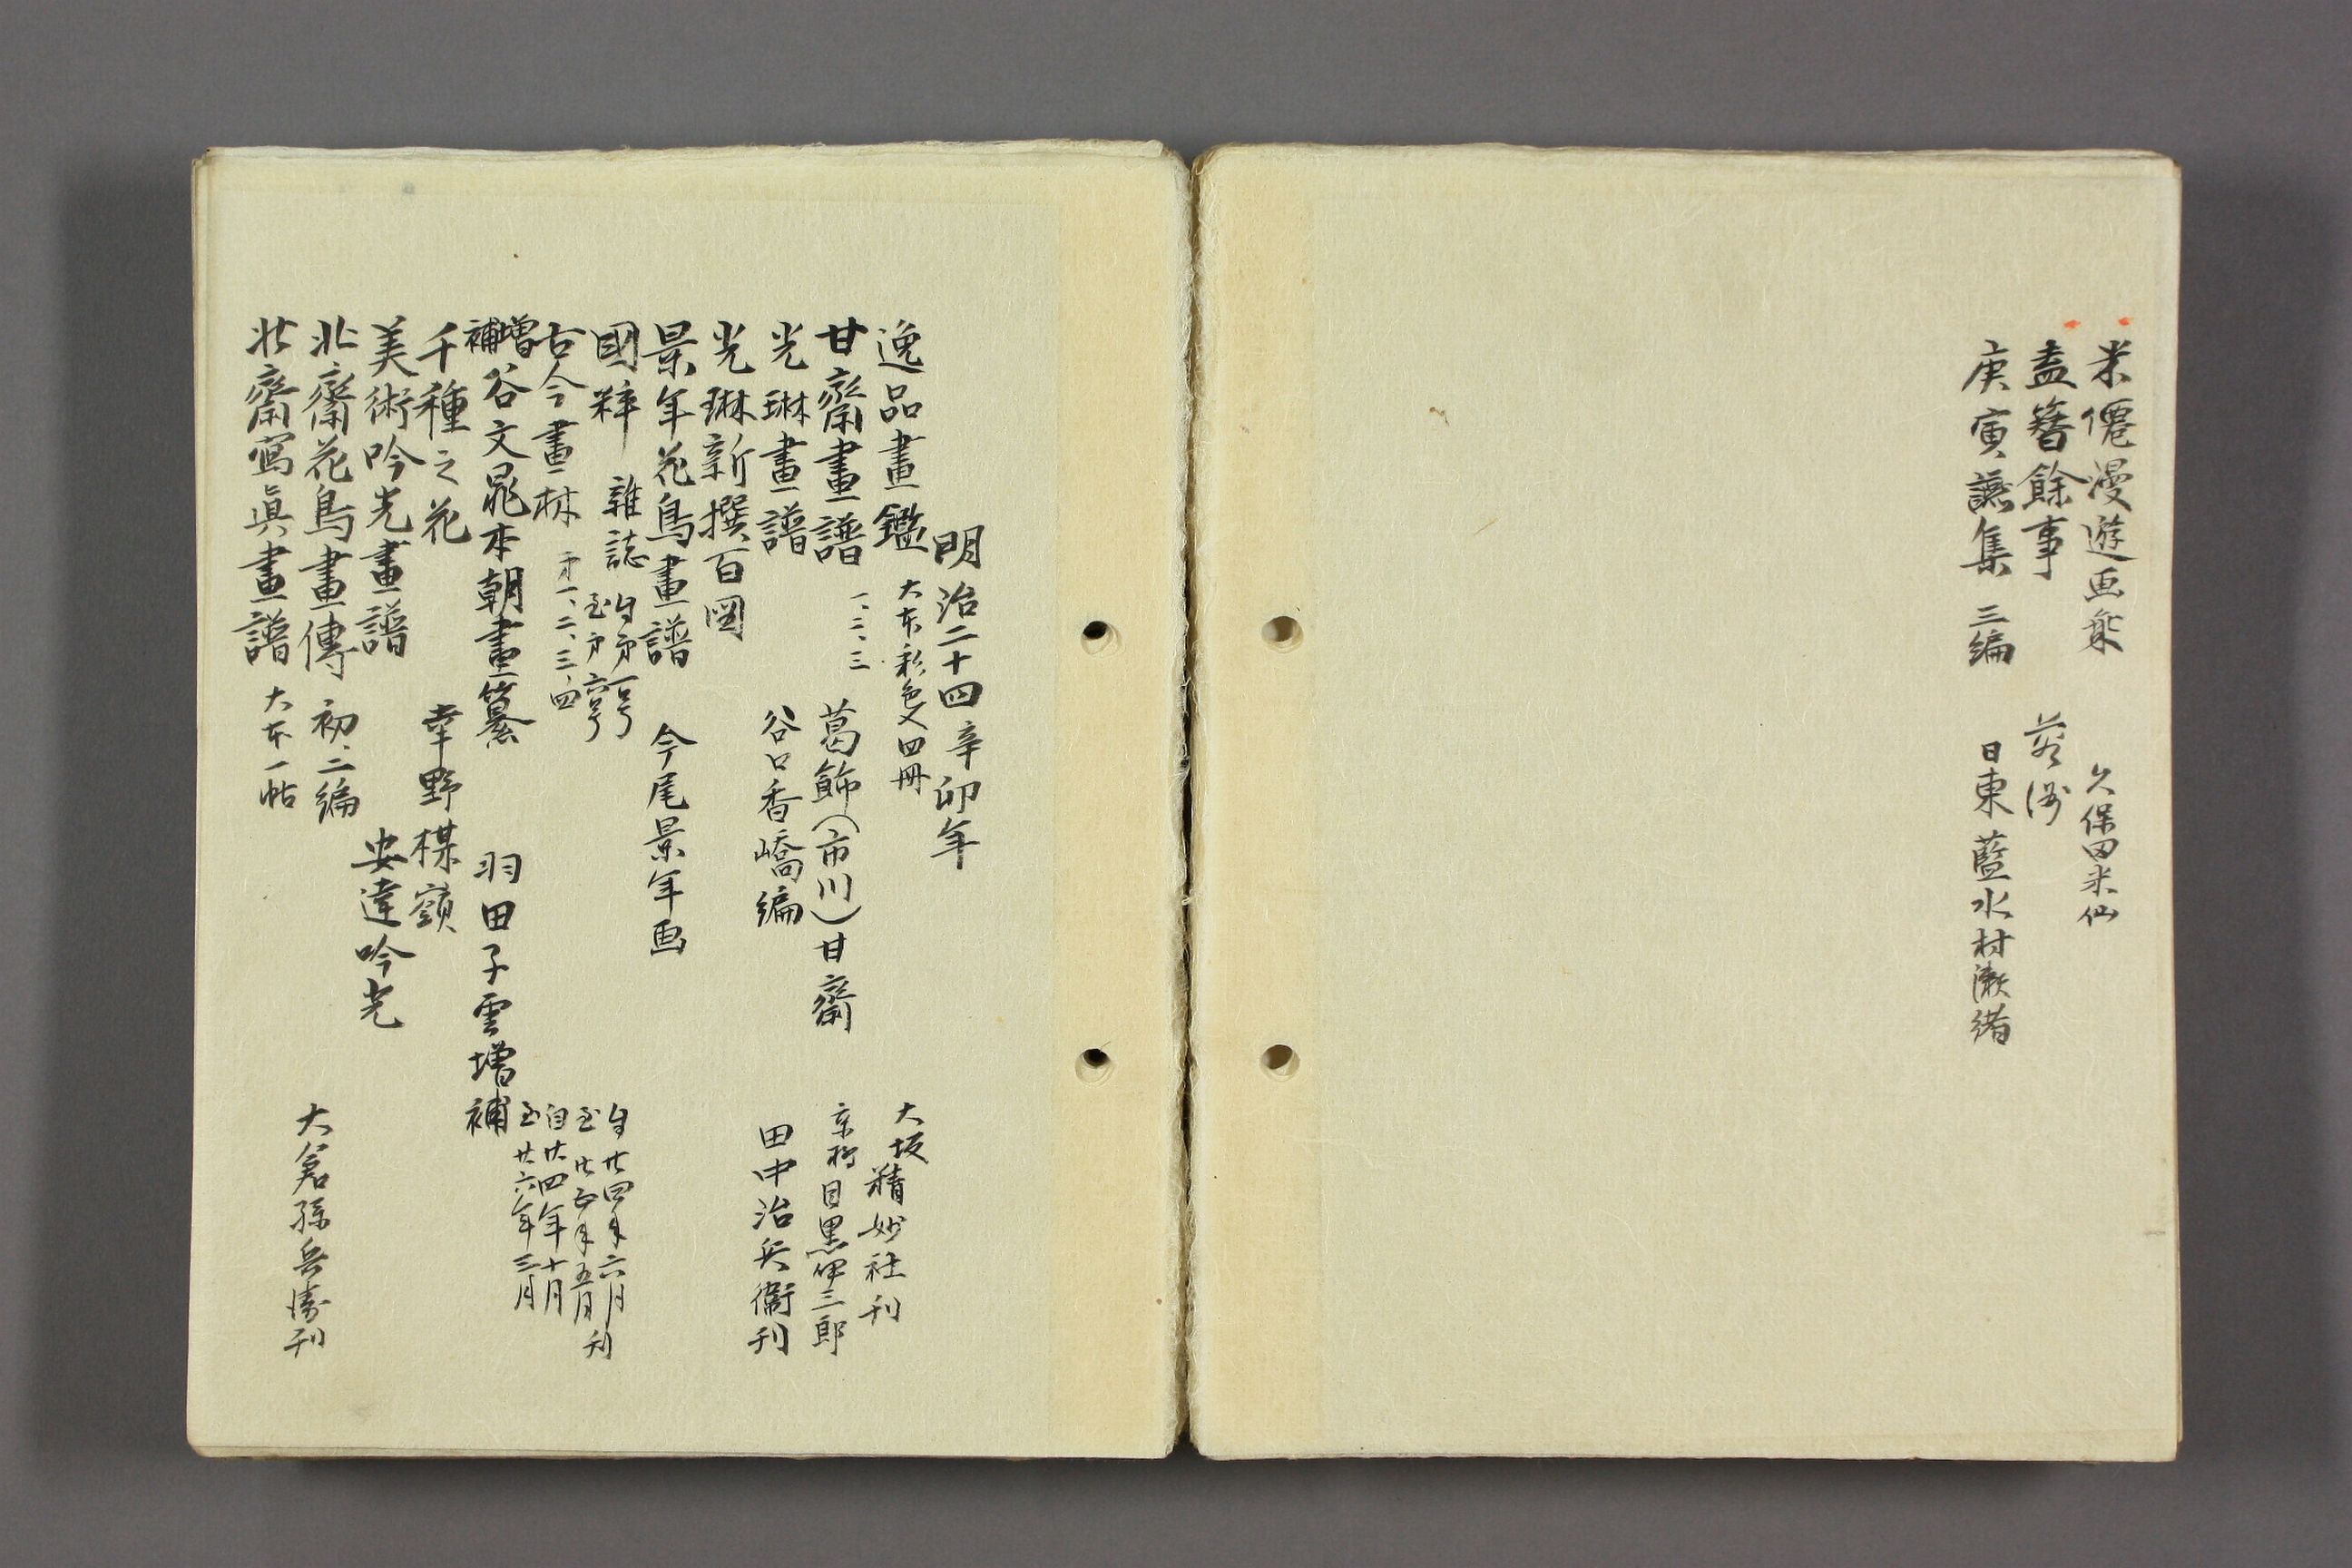 米僊漫遊画乘 久保田米仙
盍簪餘事
庚寅讌集 三編 日東 藍水村漱緒
明治二十四辛卯年
逸品畫鑑 大本彩色入四冊 大坂精妙社刊
甘齋畫譜 一、二、三 葛飾(市川)甘齋 京都 目黒伊三郎
光琳畫譜 谷口香嶠編 田中治兵衞刊
光琳新撰百図
景年花鳥畫譜 今尾景年画
國粹 雜誌 自第一号 至第六号 自廿四年六月 至廿五年五月刊
古今畫林 第一、二、三、四 自廿四年十月 至廿六年三月
増補 谷文晁本朝畫纂 羽田子雲増補
千種之花 幸野楳嶺
美術吟光畫譜 安達吟光
北齋花鳥畫傳 初、二編 大倉孫兵衛刊
北齋寫眞畫譜 大本一帖